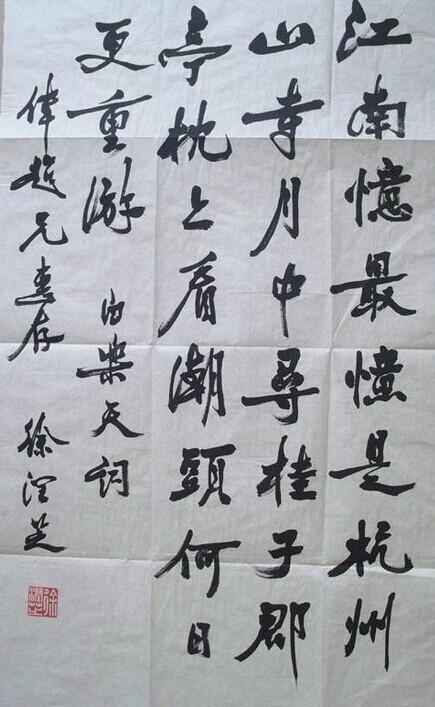 江南憶最憶是杭州
山寺月中尋桂子郡
亭枕上看潮頭何日
更重游 白樂天詞
偉超兄惠存 徐潤芝